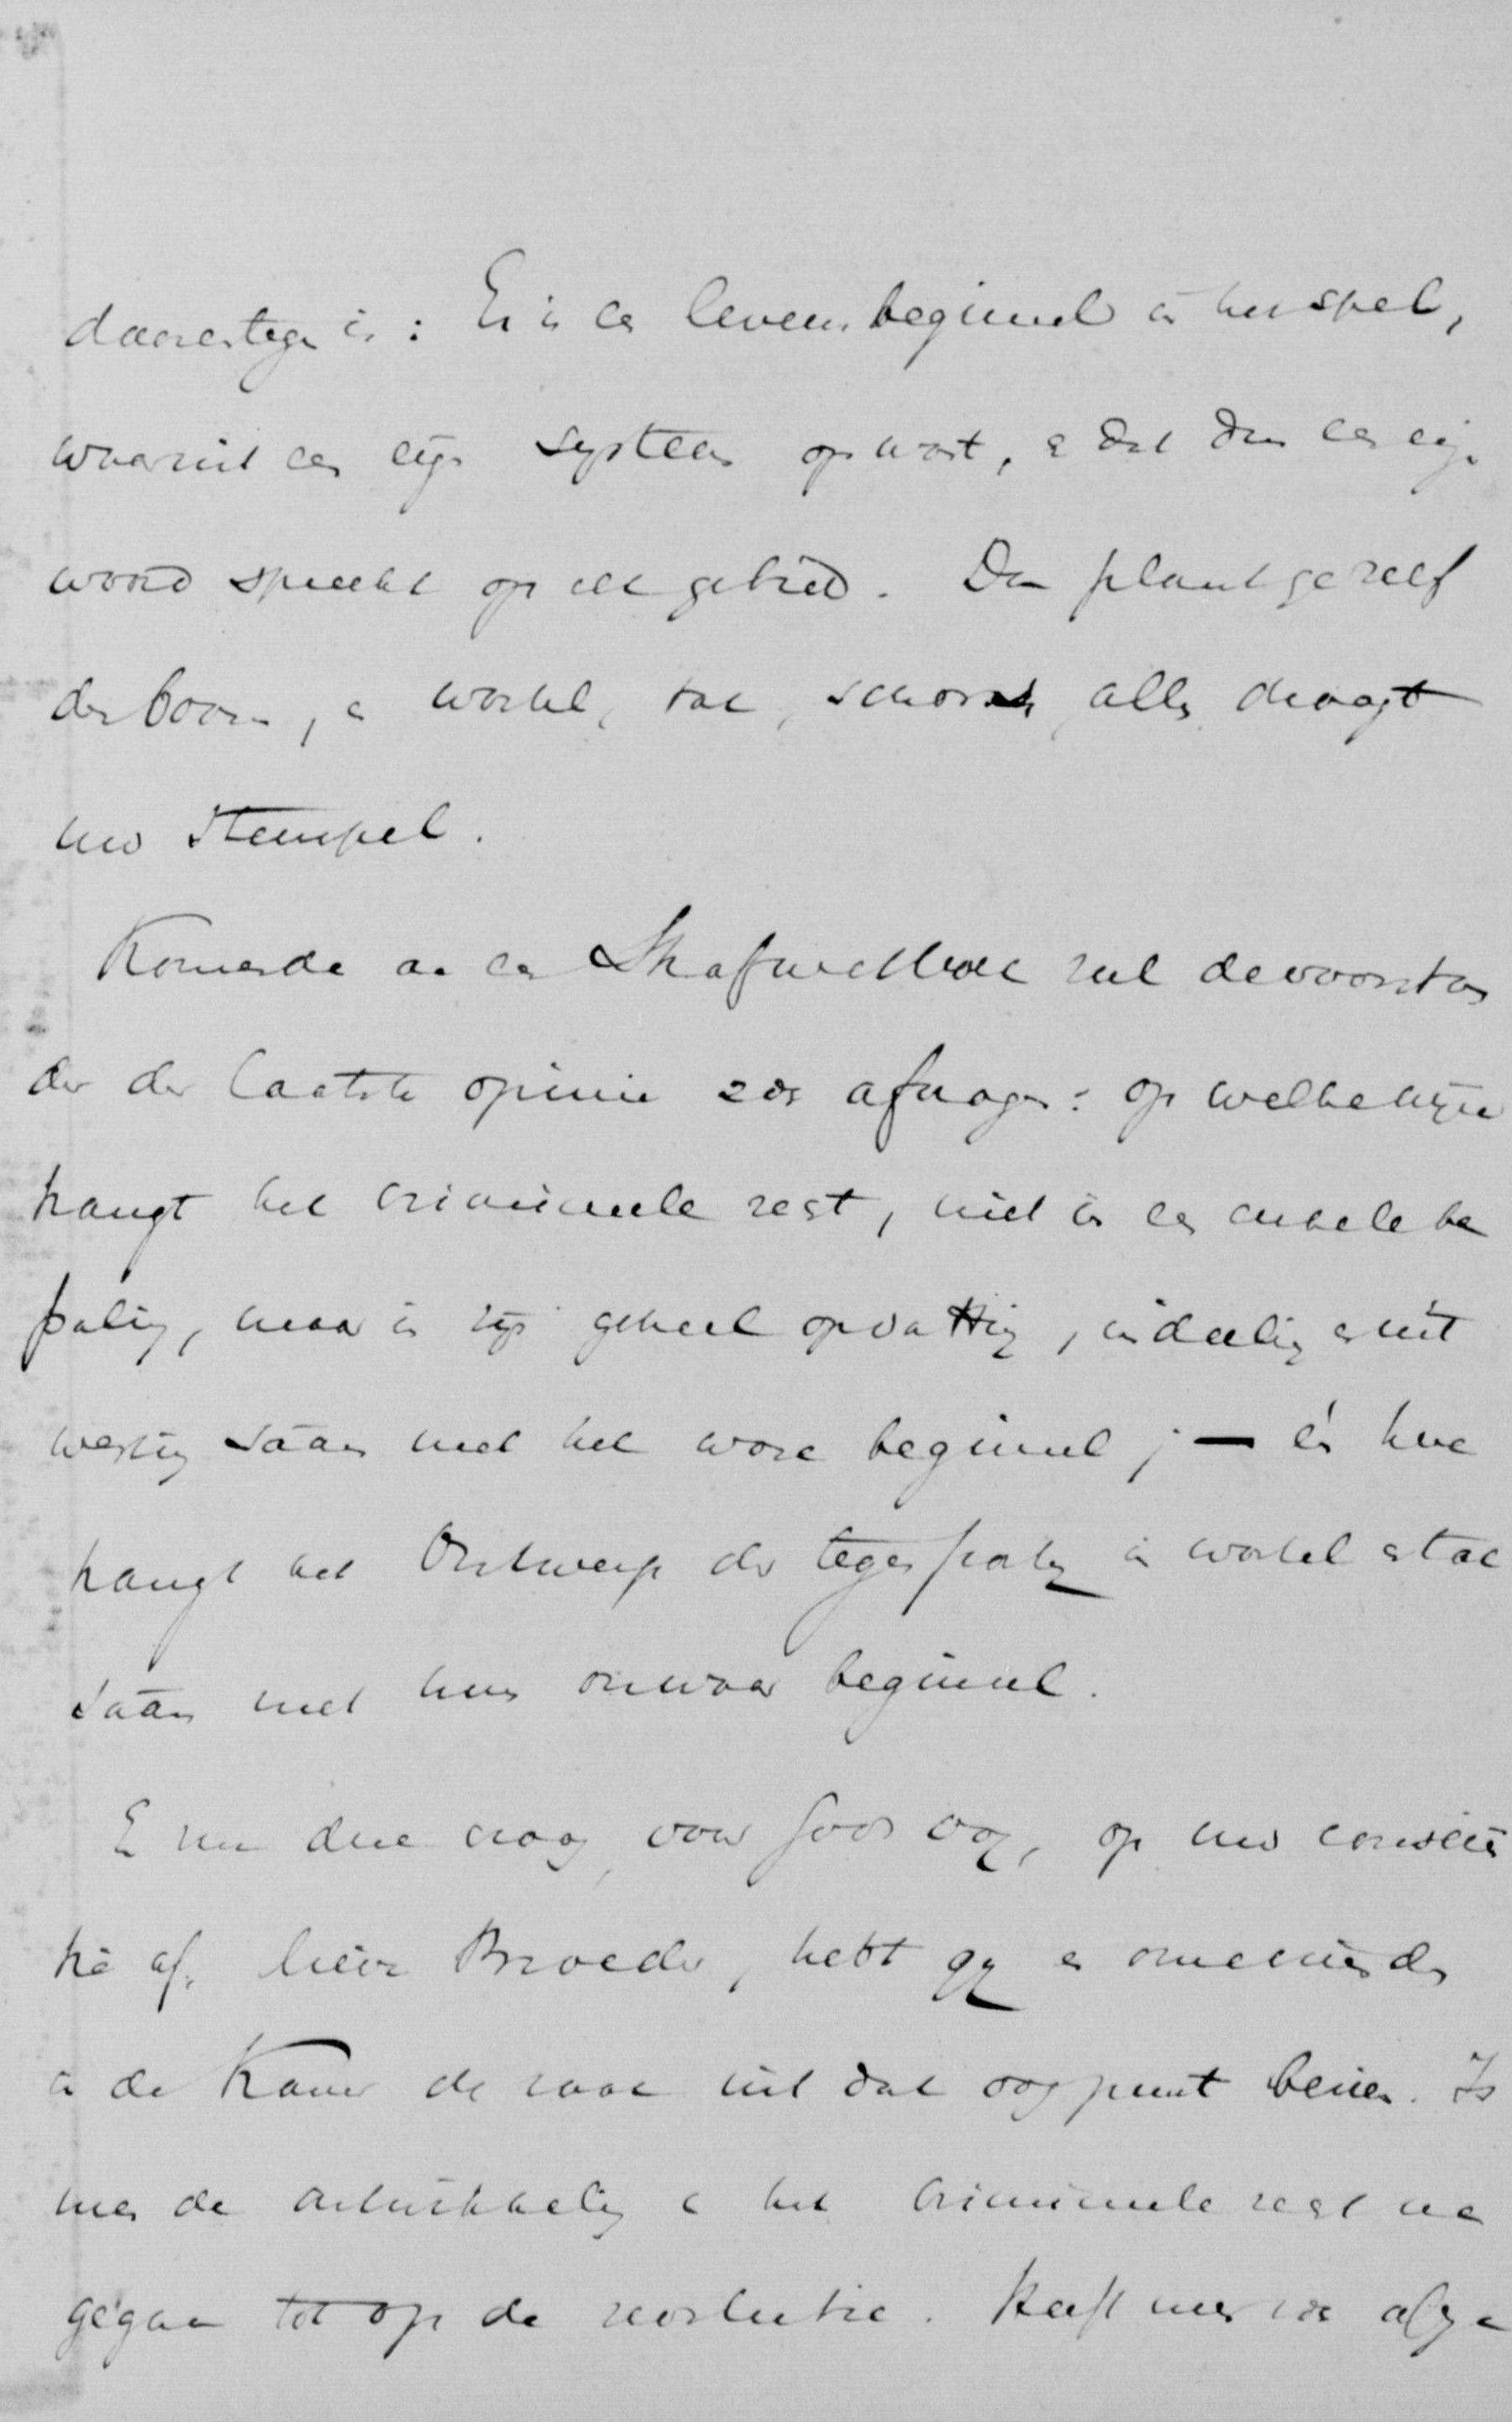 daarentegen is: Er is een levensbeginsel in het spel,
waaruit een eigen systeem opwast, en dat dan een eigen
woord spreekt op elk gebied. Dan plant ge zelf
den boom, en wortel, tak, schors, alles draagt
uw stempel.
Komende aan een Strafwetboek zal de voorstan
der der laatste opinie zich afvragen: op welke wijze
hangt het criminele regt, niet in een enkele be
paling, maar in zijn geheel opvatting, indeeling en uit
werking saâm met het ware beginsel; — én hoe
hangt het Ontwerp der tegenpartij in wortel en tak
saâm met hun onwaar beginsel.
En nu die vraag, voor Gods oog, op uw conscien
tie af, lieve Broeder, hebt gij en uwe vrienden
in de Kamer de zaak uit dat oogpunt bezien. Is
men de ontwikkeling v het criminele regt na
gegaan tot op de revolutie. Heeft men zich afge